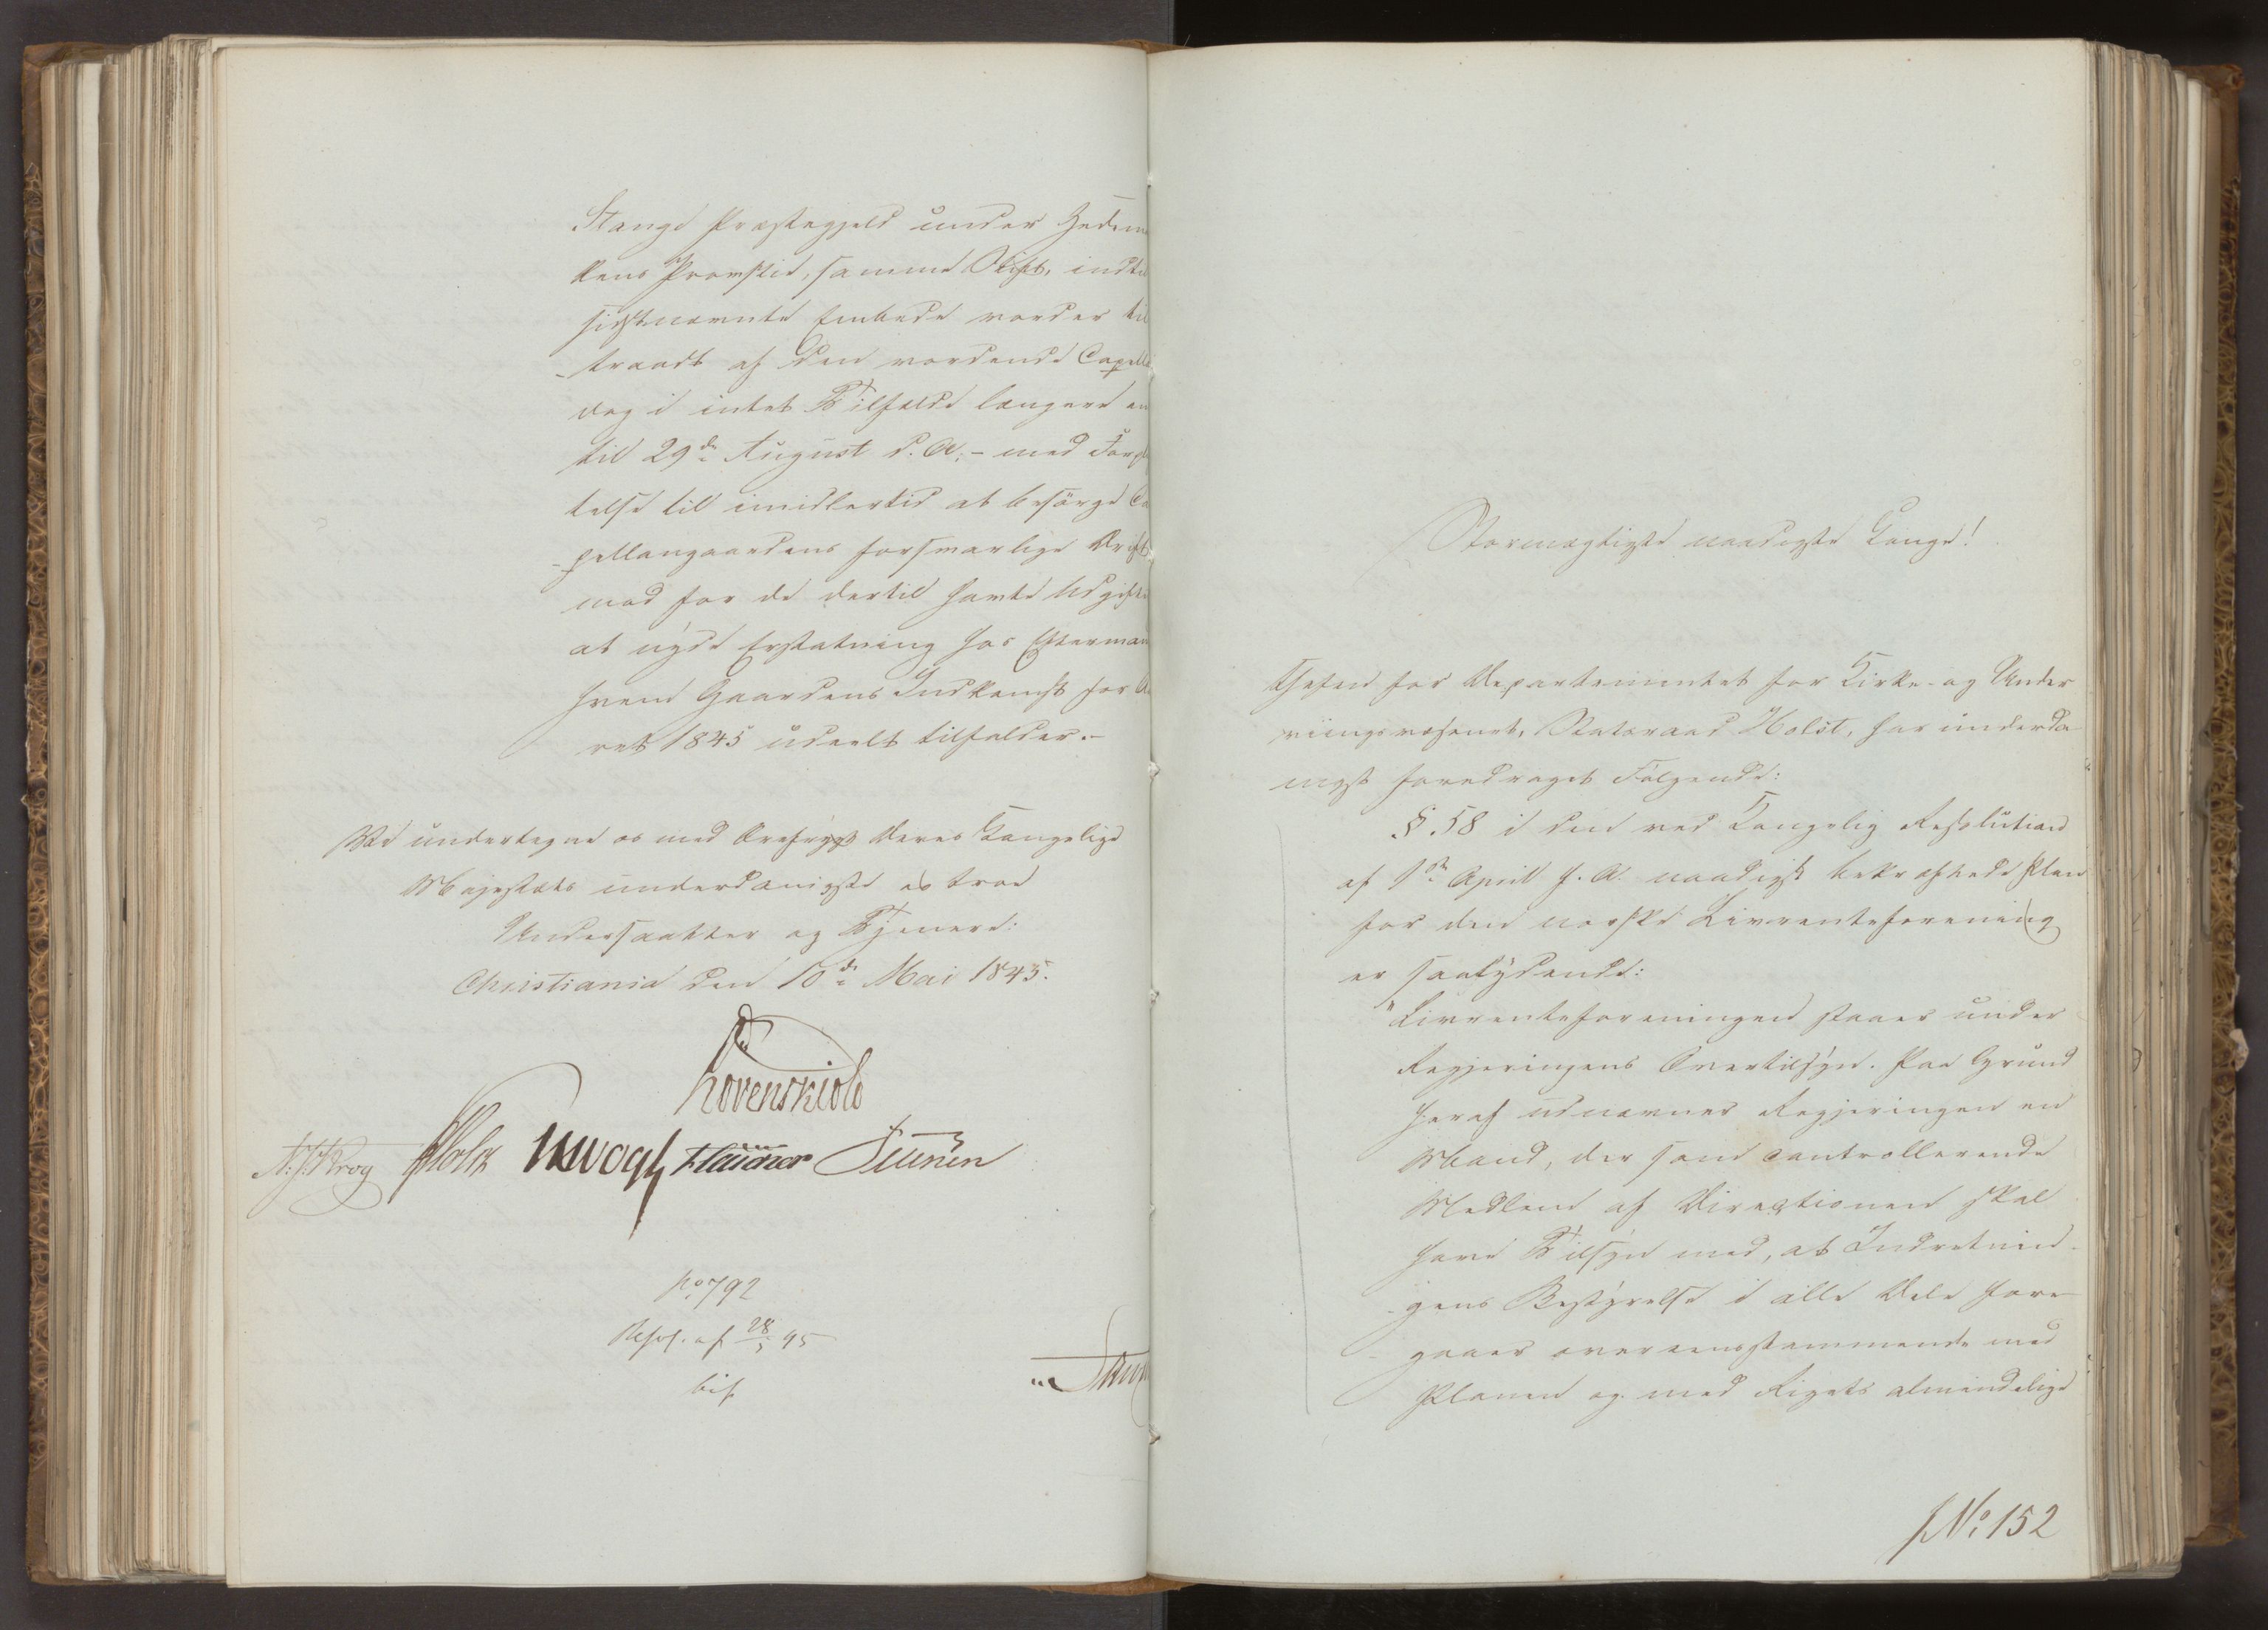 Stange Præstegjeld under Hedem
kens Provstie, samme Stift, indtil
sidstnævnte Embede vorder til
-traadt af den vordende Capell
dog i intet Tilfælde længere en
til 29de August d. A. - med Forpl
telse til imidlertid at besørge Ca
-pellangaardens forsvarlige Drift
mod for de dertil havte Udgifte
at nyde Erstatning hos Eftermand
hvem Gaardens Indkomst for Aa
ret 1845 udeelt tilfalder.-
Vi undertegne os med Ærefrygt Deres Kongelige
Majestæts underdanigste og troe
Undersaatter og Tjenere:
Christiania den 10de Mai 1845.
Løvenskiold
N. J. Krog Holst JHVogt Flauner Siuren
No 792
Resol. af 28/5 45
bif.
Stormægtigste naadigste Konge!
Chefen for Departementet for Kirke- og Under
viisningsvæsenet, Statsraad Holst, har underda
nigst foredraget Følgende:
§ 58 i den ved Kongelig Resolution
af 1ste April f. A. naadigst bekræftede Plan
for den norske Livrenteforening
er saalydende:
"Livrenteforeningen staaer under
Regjeringens Overtilsyn. Paa Grund
heraf udnævner Regjeringen en
Mand, der som controllerende
Medlem af Directionen skal
have Tilsyn med, at Indretnin-
-gens Bestyrelse i alle Dele fore-
-gaaer overeensstemmende med
Planen og med Rigets almindelige
No 152